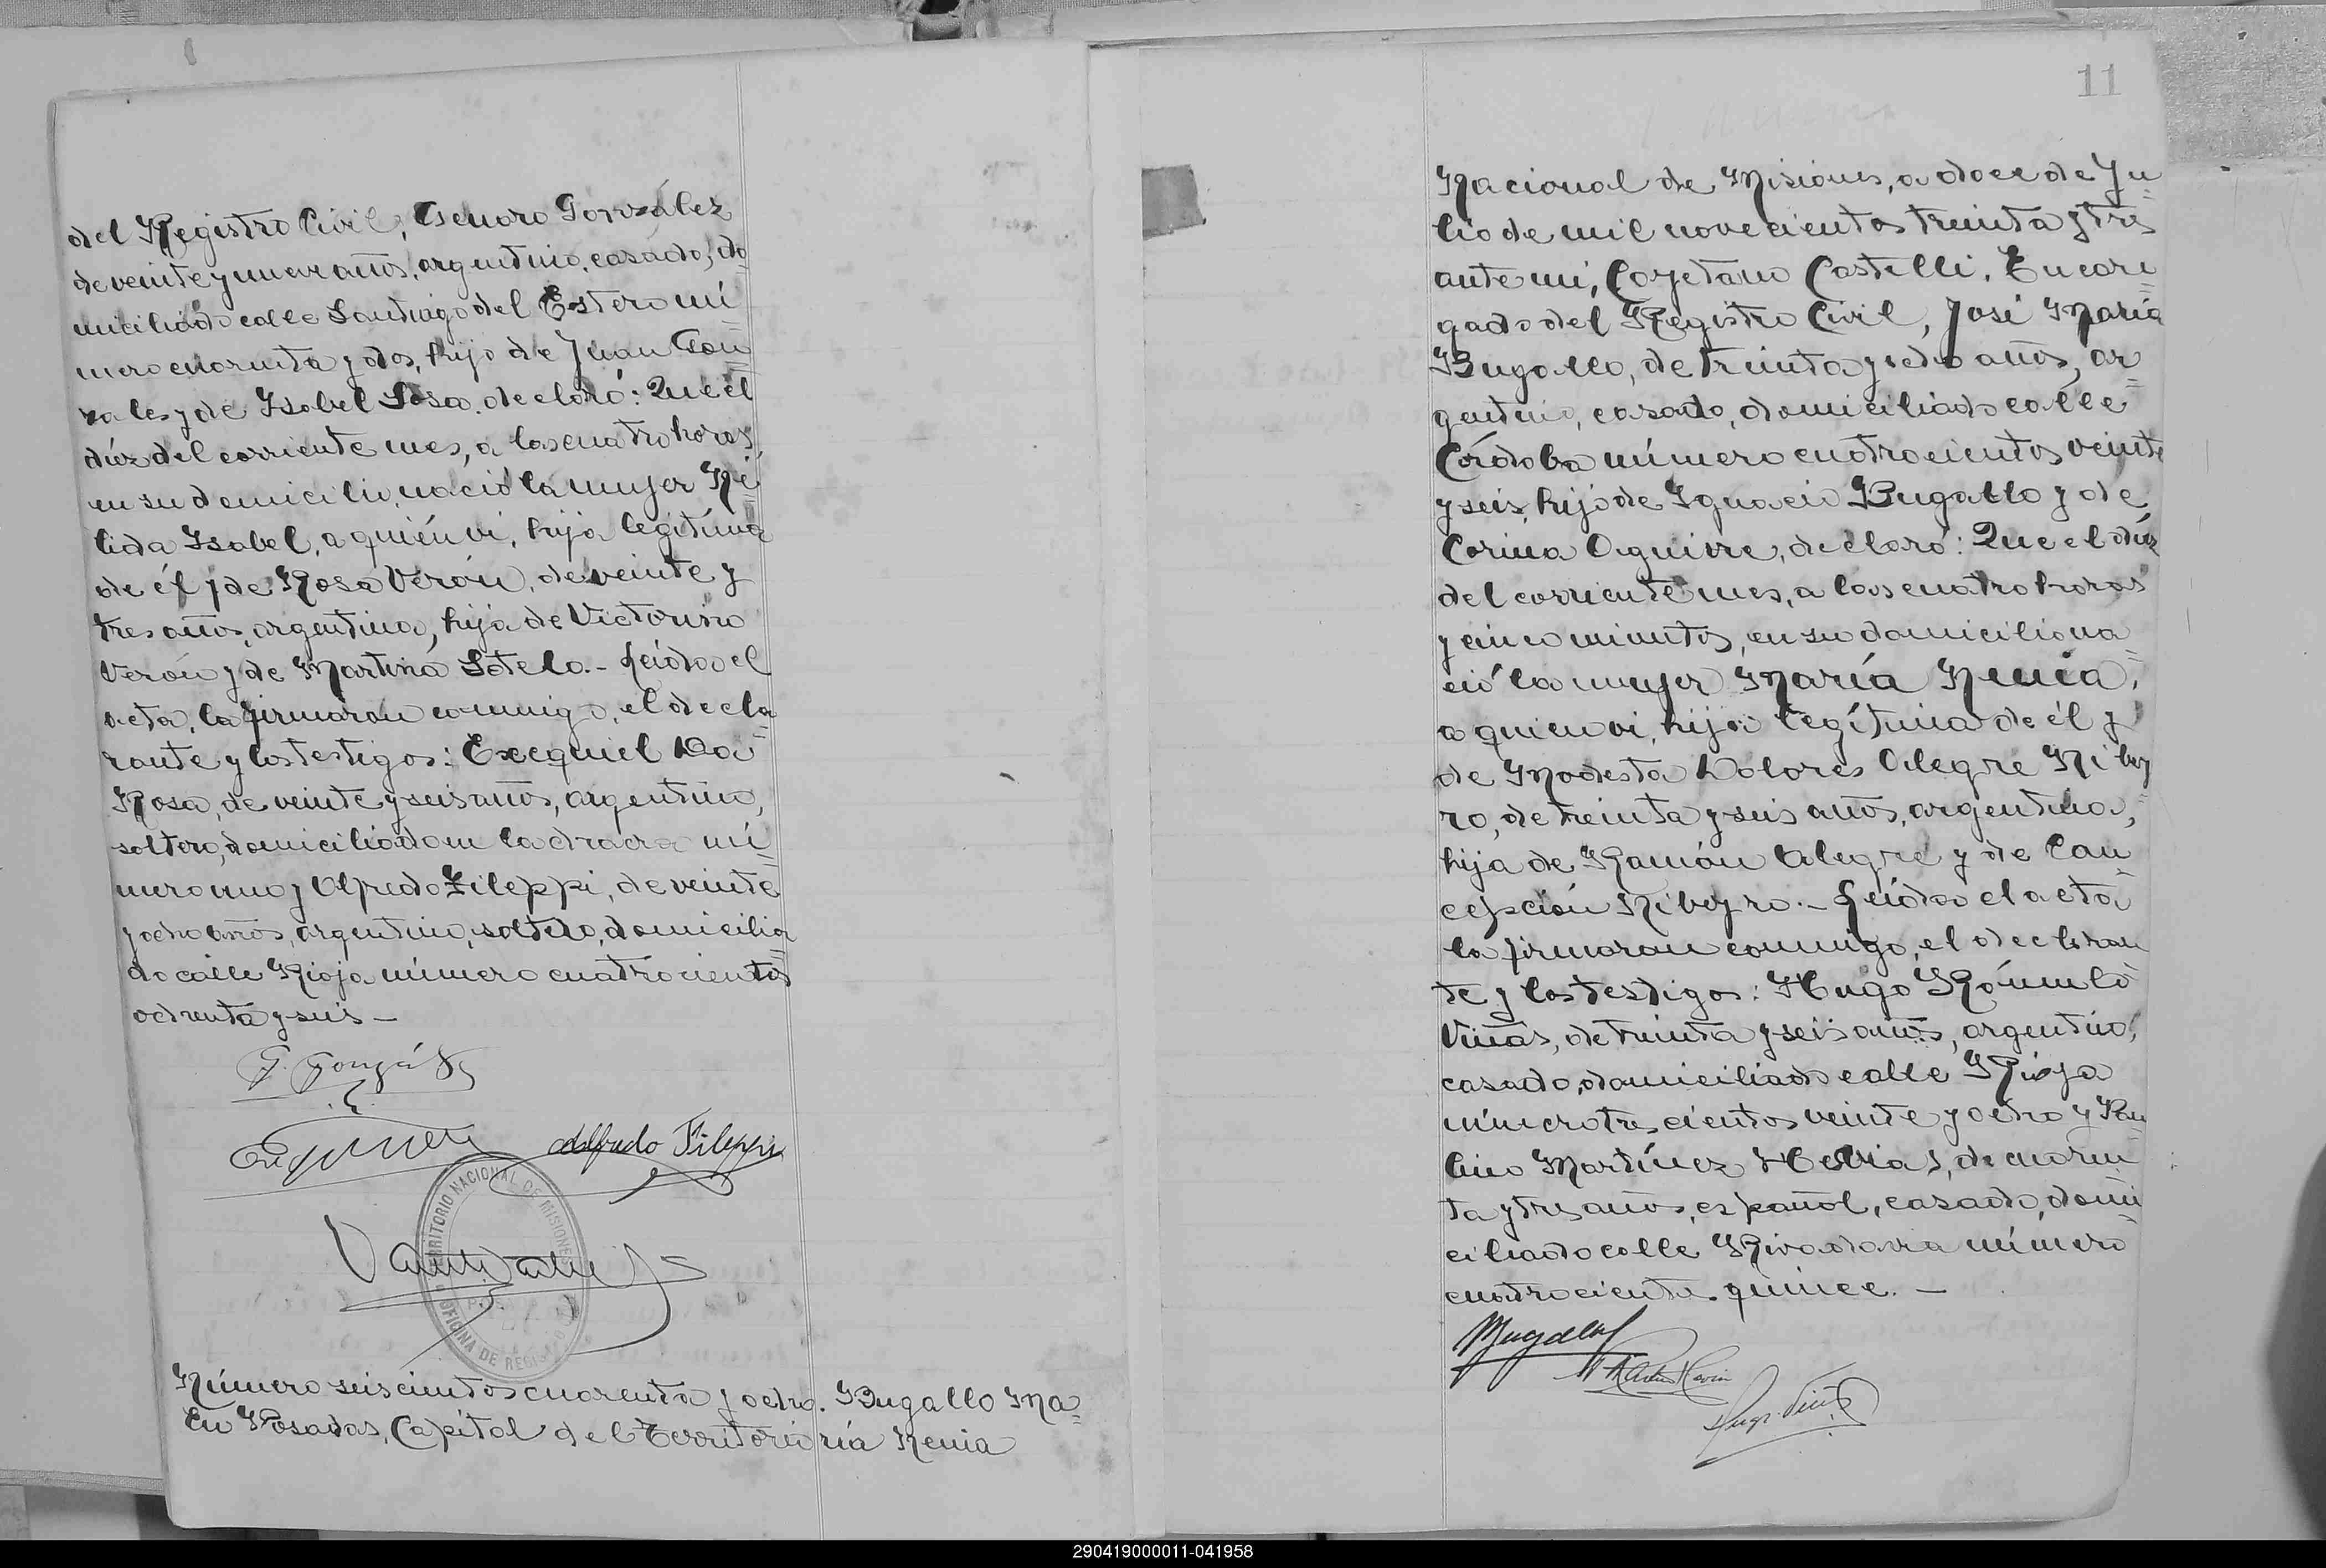 del Registro Civil, Genaro González
de veinte y nueve años, argentino, casado, do=
miciliado calle Santiago del Estero nú=
mero cuarenta y dos, hijo de Juan Gon=
zales y de Isabel Sosa, declaró: Que el
diez del corriente mes, a las cuatro horas
en su domicilio, nació la mujer Né=
lida Isabel, a quién vi, hija legítima
de él y de Rosa Verón, de veinte y
tres años, argentina, hija de Victorino
Verón y de Martina Sotelo.- Leída el
acta, la firmaron conmigo, el decla=
rante y los testigos: Exequiel Da
Rosa, de veinte y seis años, argentino,
soltero, domiciliado en la chacra nú=
mero uno y Alfredo Fileppi, de veinte
y ocho años, argentino, soltero, domicilia=
do calle Rioja número cuatrocientos
ochenta y seis -
G. González
Alfredo Fileppi
TERRITORIO NACIONAL DE MISIONES
OFICINA DE REGISTRO
Número seiscientos cuarenta y ocho. Bugallo Ma=
En Posadas, Capital del Territorio ría Nenia
11
Nacional de Misiones, a doce de Ju=
lio de mil novecientos treinta y tres
ante mi, Cayetano Castelli, Encar
gado del Registro Civil, José María
Bugallo, de treinta y ocho años, ar=
gentino, casado, domiciliado calle
Córdoba número cuatrocientos veinte
y seis, hijo de Ignacio Bugallo y de
Corina Aguirre, declaró: Que el diez
del corriente mes, a las cuatro horas
y cinco minutos, en su domicilio na=
ció la mujer María Nenia,
a quien vi, hija legítima de él y
de Modesta Dolores Alegre Ribey
ro, de treinta y seis años, argentina,
hija de Ramón Alegre y de Con=
cepción Ribeyro.- Leída el acta
la firmaron conmigo, el declaran=
te y los testigos: Hugo Rómulo
Viñas, de treinta y seis años, argentino,
casado, domiciliado calle Rioja
número trescientos veinte y ocho y Pau=
lino Martínez Hevia, de cuaren=
ta y tres años, español, casado, domi=
ciliado calle Rivadavia número
cuatrocientos quince. -
Bugallo
290419000011-041958